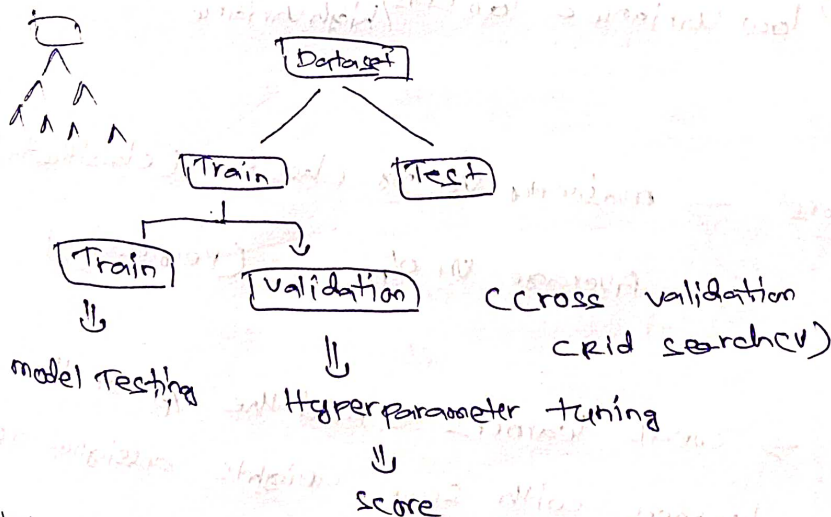 Dataset
Train
Test
Train
Validation
(Cross validation
GRid search CV)
model Testing
Hyperparameter tuning
score